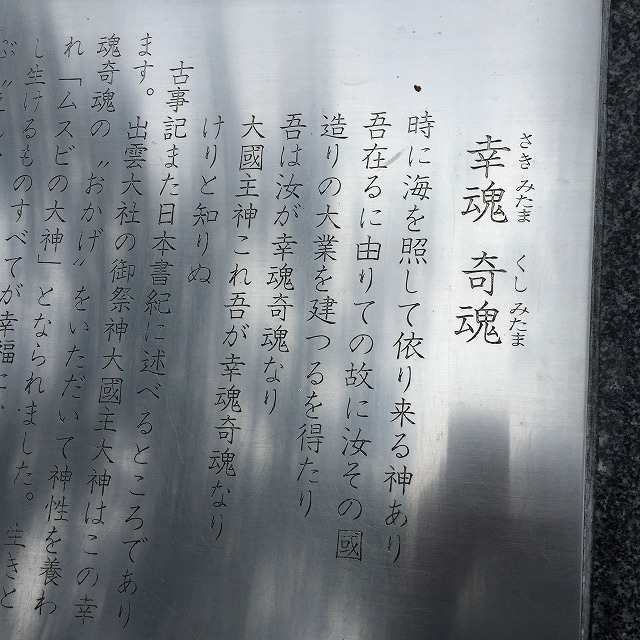 さきみたま くしみたま
幸魂 奇魂
時に海を照して依り来る神あり
吾在るに由りての故に汝その國
造りの大業を建つるを得たり
吾は汝が幸魂奇魂なり
大國主神これ吾が幸魂奇魂なり
けりと知りぬ
古事記また日本書紀に述べるところであり
ます。出雲大社の御祭神大國主大神はこの幸
魂奇魂の〝おかげ〟をいただいて神性を養わ
れ「ムスビの大神」となられました。生きと
し生けるものすべてが幸福に